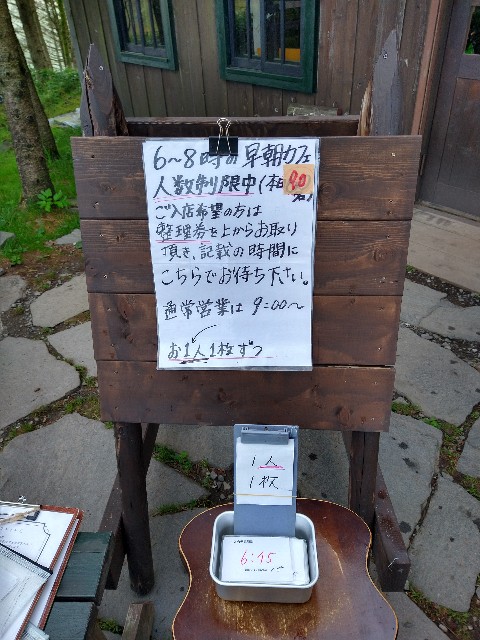 6〜8時の早朝カフェ
人数制限中(本日 90名)
ご入店希望の方は
整理券を上からお取り
頂き、記載の時間に
こちらでお待ち下さい。
通常営業は 9:00〜
お1人1枚ずつ
1人
1枚
6:45